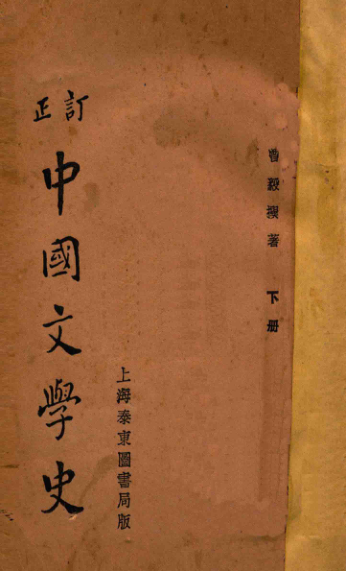 曾毅撰著 下册
訂正
中國文學史
上海泰東圖書局版